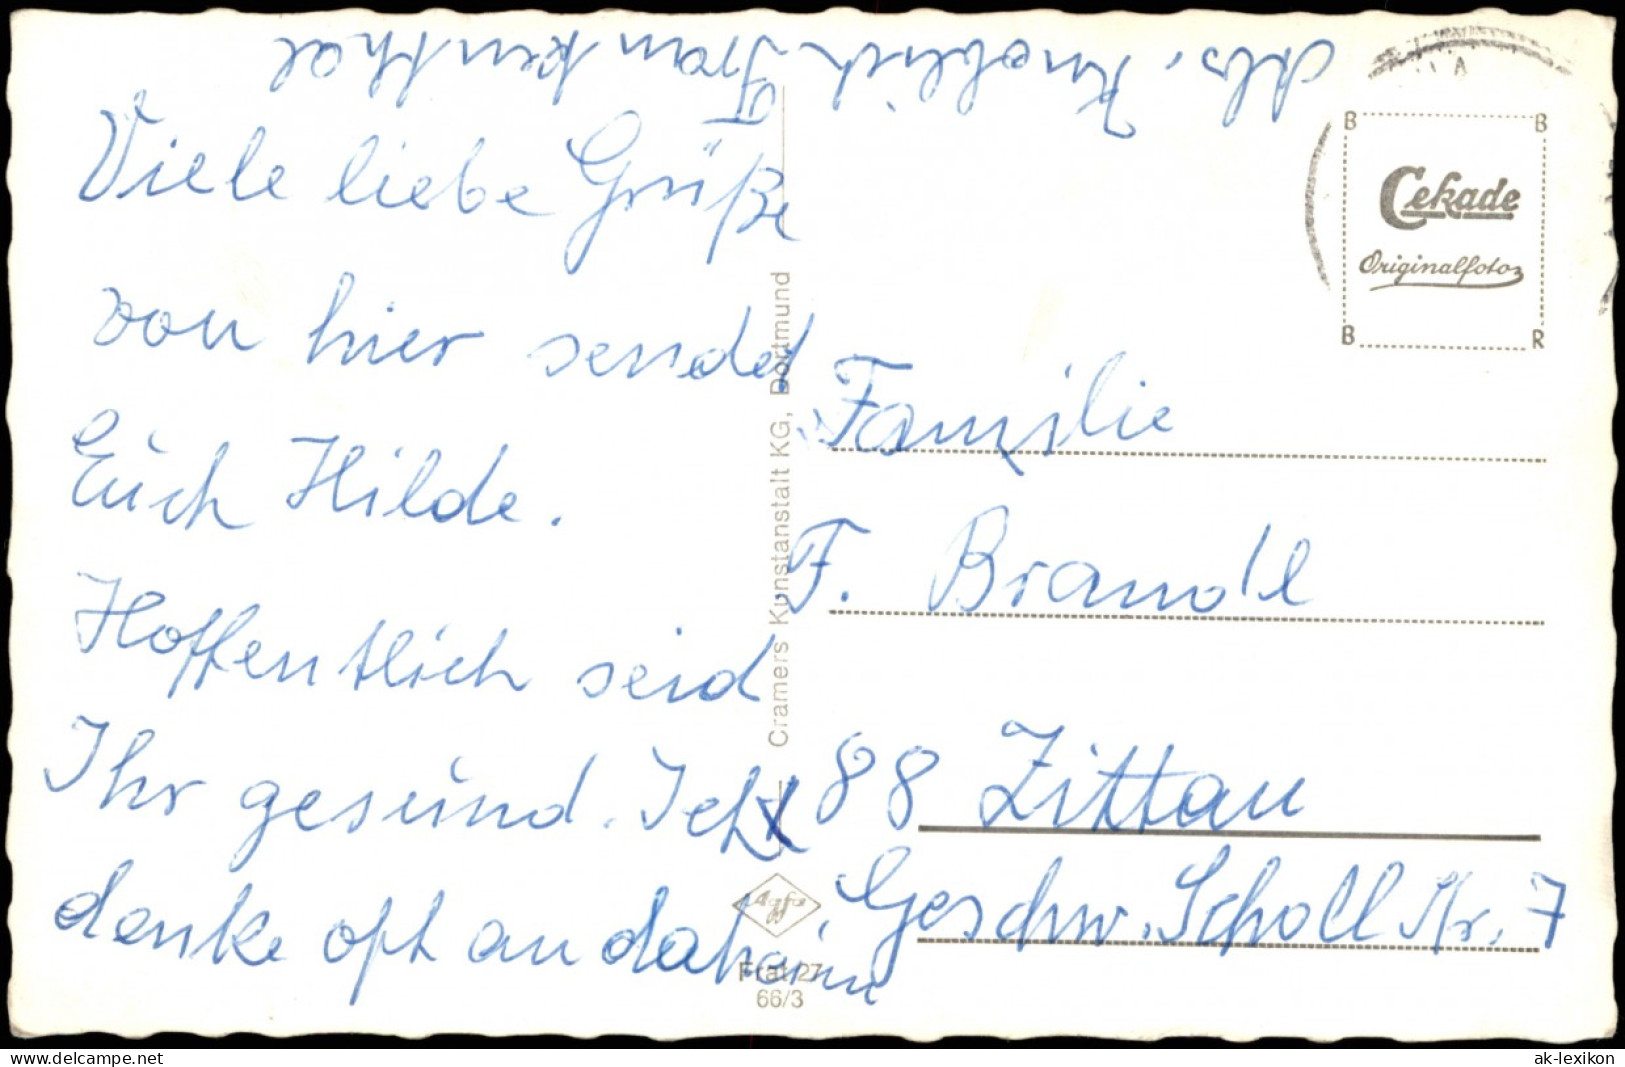 Abs. Knoblich Frankenthal
Viele liebe Grüße
von hier sendet
Euch Hilde.
Hoffentlich seid
Ihr gesund. Ich
denke oft an daheim
Familie
F. Brandl
88 Zittau
Geschw. Scholl Str. 7
B B
Cekade
Originalfoto
B R
Cramers Kunstanstalt KG, Dortmund
Agfa
Frat 27
66/3
www.delcampe.net
ak-lexikon